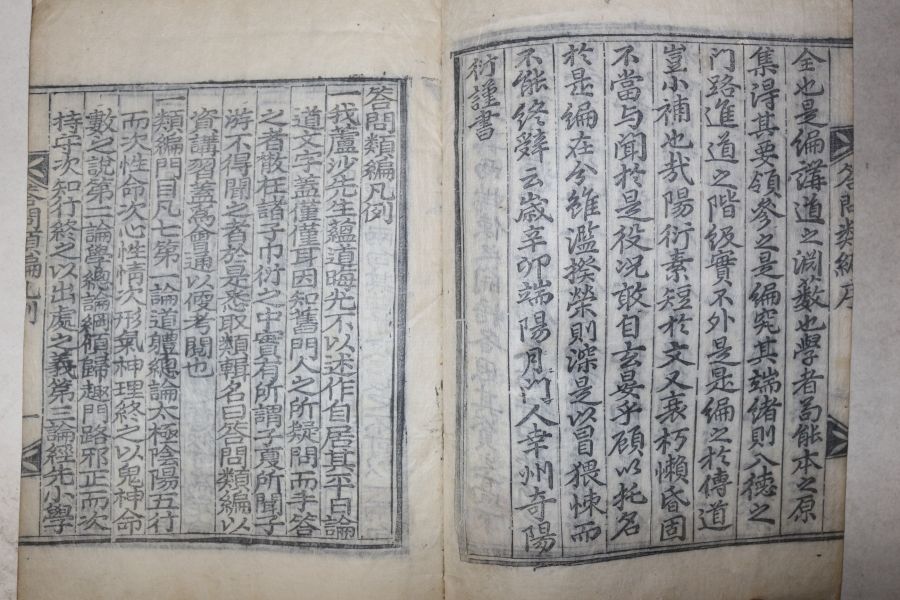 全也是編講道之淵藪也學者苟能本之原
集淂其要領參之是編究其端緒則入徳之
门路進道之階級實不外是是編之於傳道
豈小補也㢤陽衍素短於文又衰朽懶昏固
不當与聞於是役况敢自玄晏乎顧以托名
於是編在兮雖濫揆榮則深是以冒猥悚而
不能终辤云歳辛卯端陽月门人幸州奇陽
衍謹書
答問類編序
答問類編凡例
一我蘆沙先生蘊道晦光不以述作自居其平日論
道文字蓋僅僅耳因知舊門人之所疑問而手答
之者散在諸子巾衍之中實有所謂子夏所聞子
游不得聞之者於是悉取類輯名曰答問類編以
資講習蓋爲會通以便考閱也
一類編門目凡七第一論道體總論太極陰陽五行
而次性命次心性情次形氣神理終之以鬼神命
數之說第二論學總論綱領歸趣門路邪正而次
持守次知行終之以出處之義第三論經先小學
答問類編凡例
一